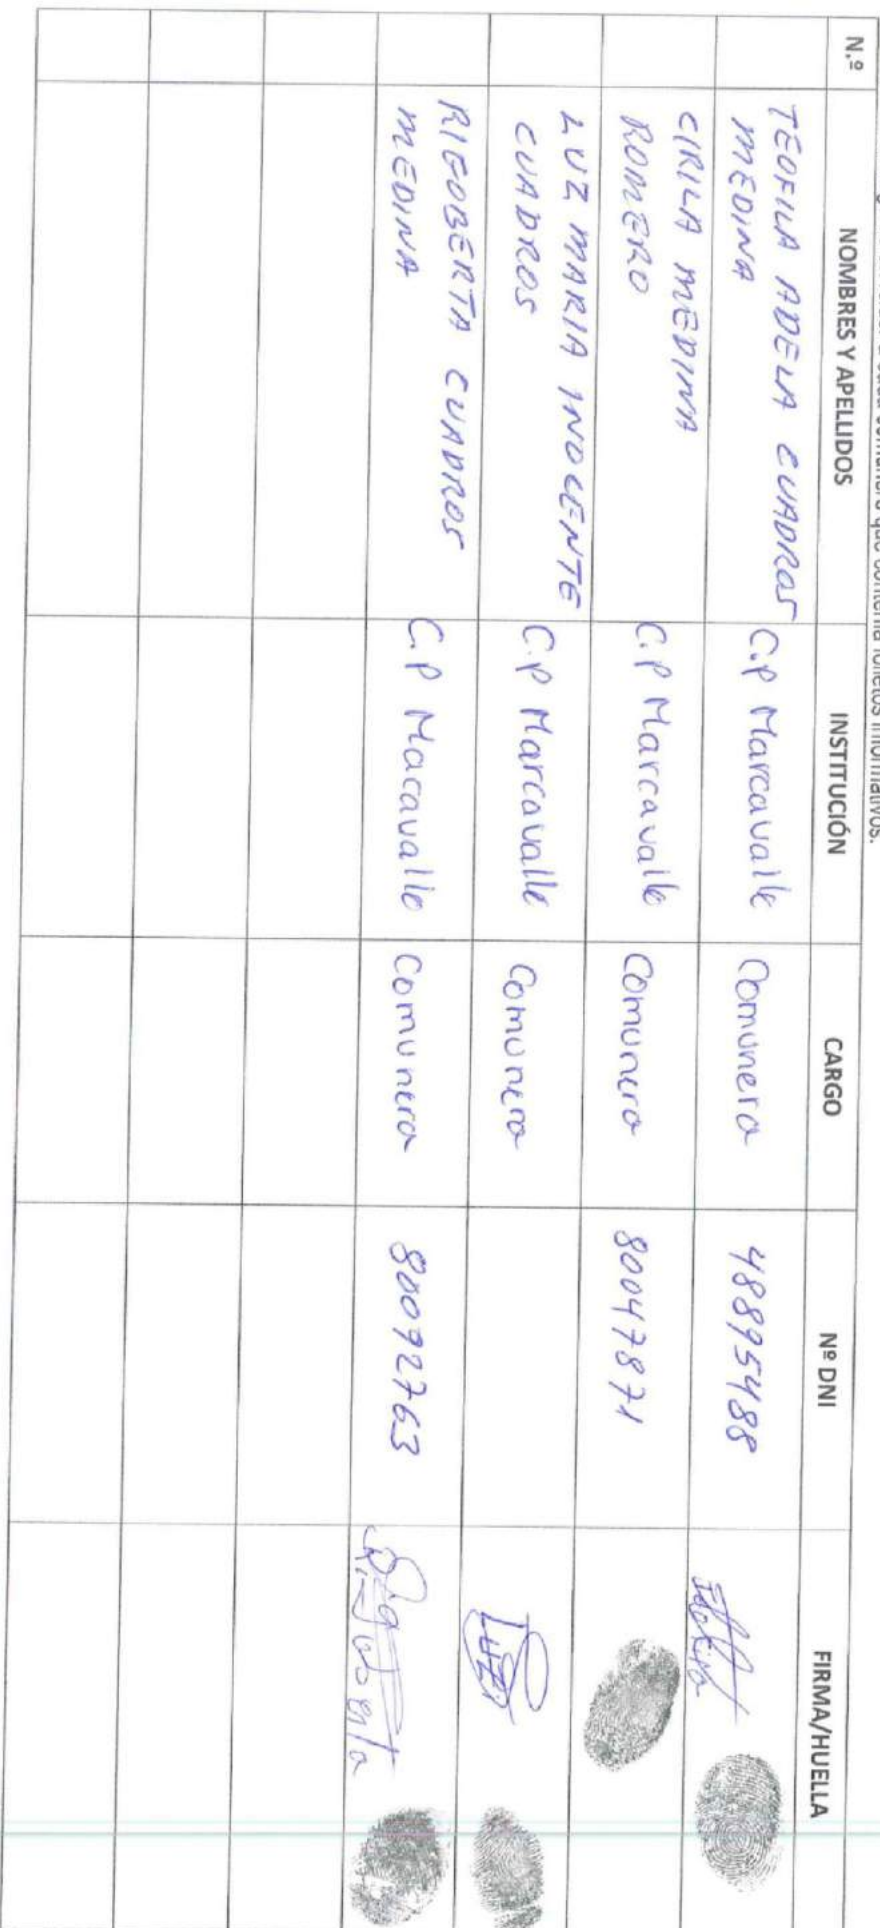 a cada comunero que contenía folletos informativos.
N.º NOMBRES Y APELLIDOS INSTITUCIÓN CARGO Nº DNI FIRMA/HUELLA
TEOFILA ADELA CUADROS
MEDINA C.P Marcavalle Comunera 48895488
CIRILA MEDINA
ROMERO C.P Marcavalle Comunera 80047871
LUZ MARIA INOCENTE
CUADROS C.P Marcavalle Comunera Luz
RIGOBERTA CUADROS
MEDINA C.P Macavalle Comunera 80092763 Rigoberta